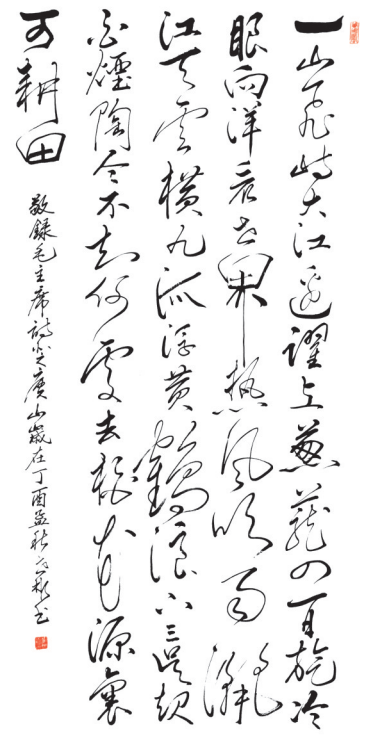 一山飛峙大江邊躍上蔥蘢四百旋冷
眼向洋看世界熱風吹雨灑
江天雲橫九派浮黃鶴浪下三吳起
白煙陶令不知何處去桃花源裏
可耕田
敬錄毛主席詩登廬山歲在丁酉孟秋